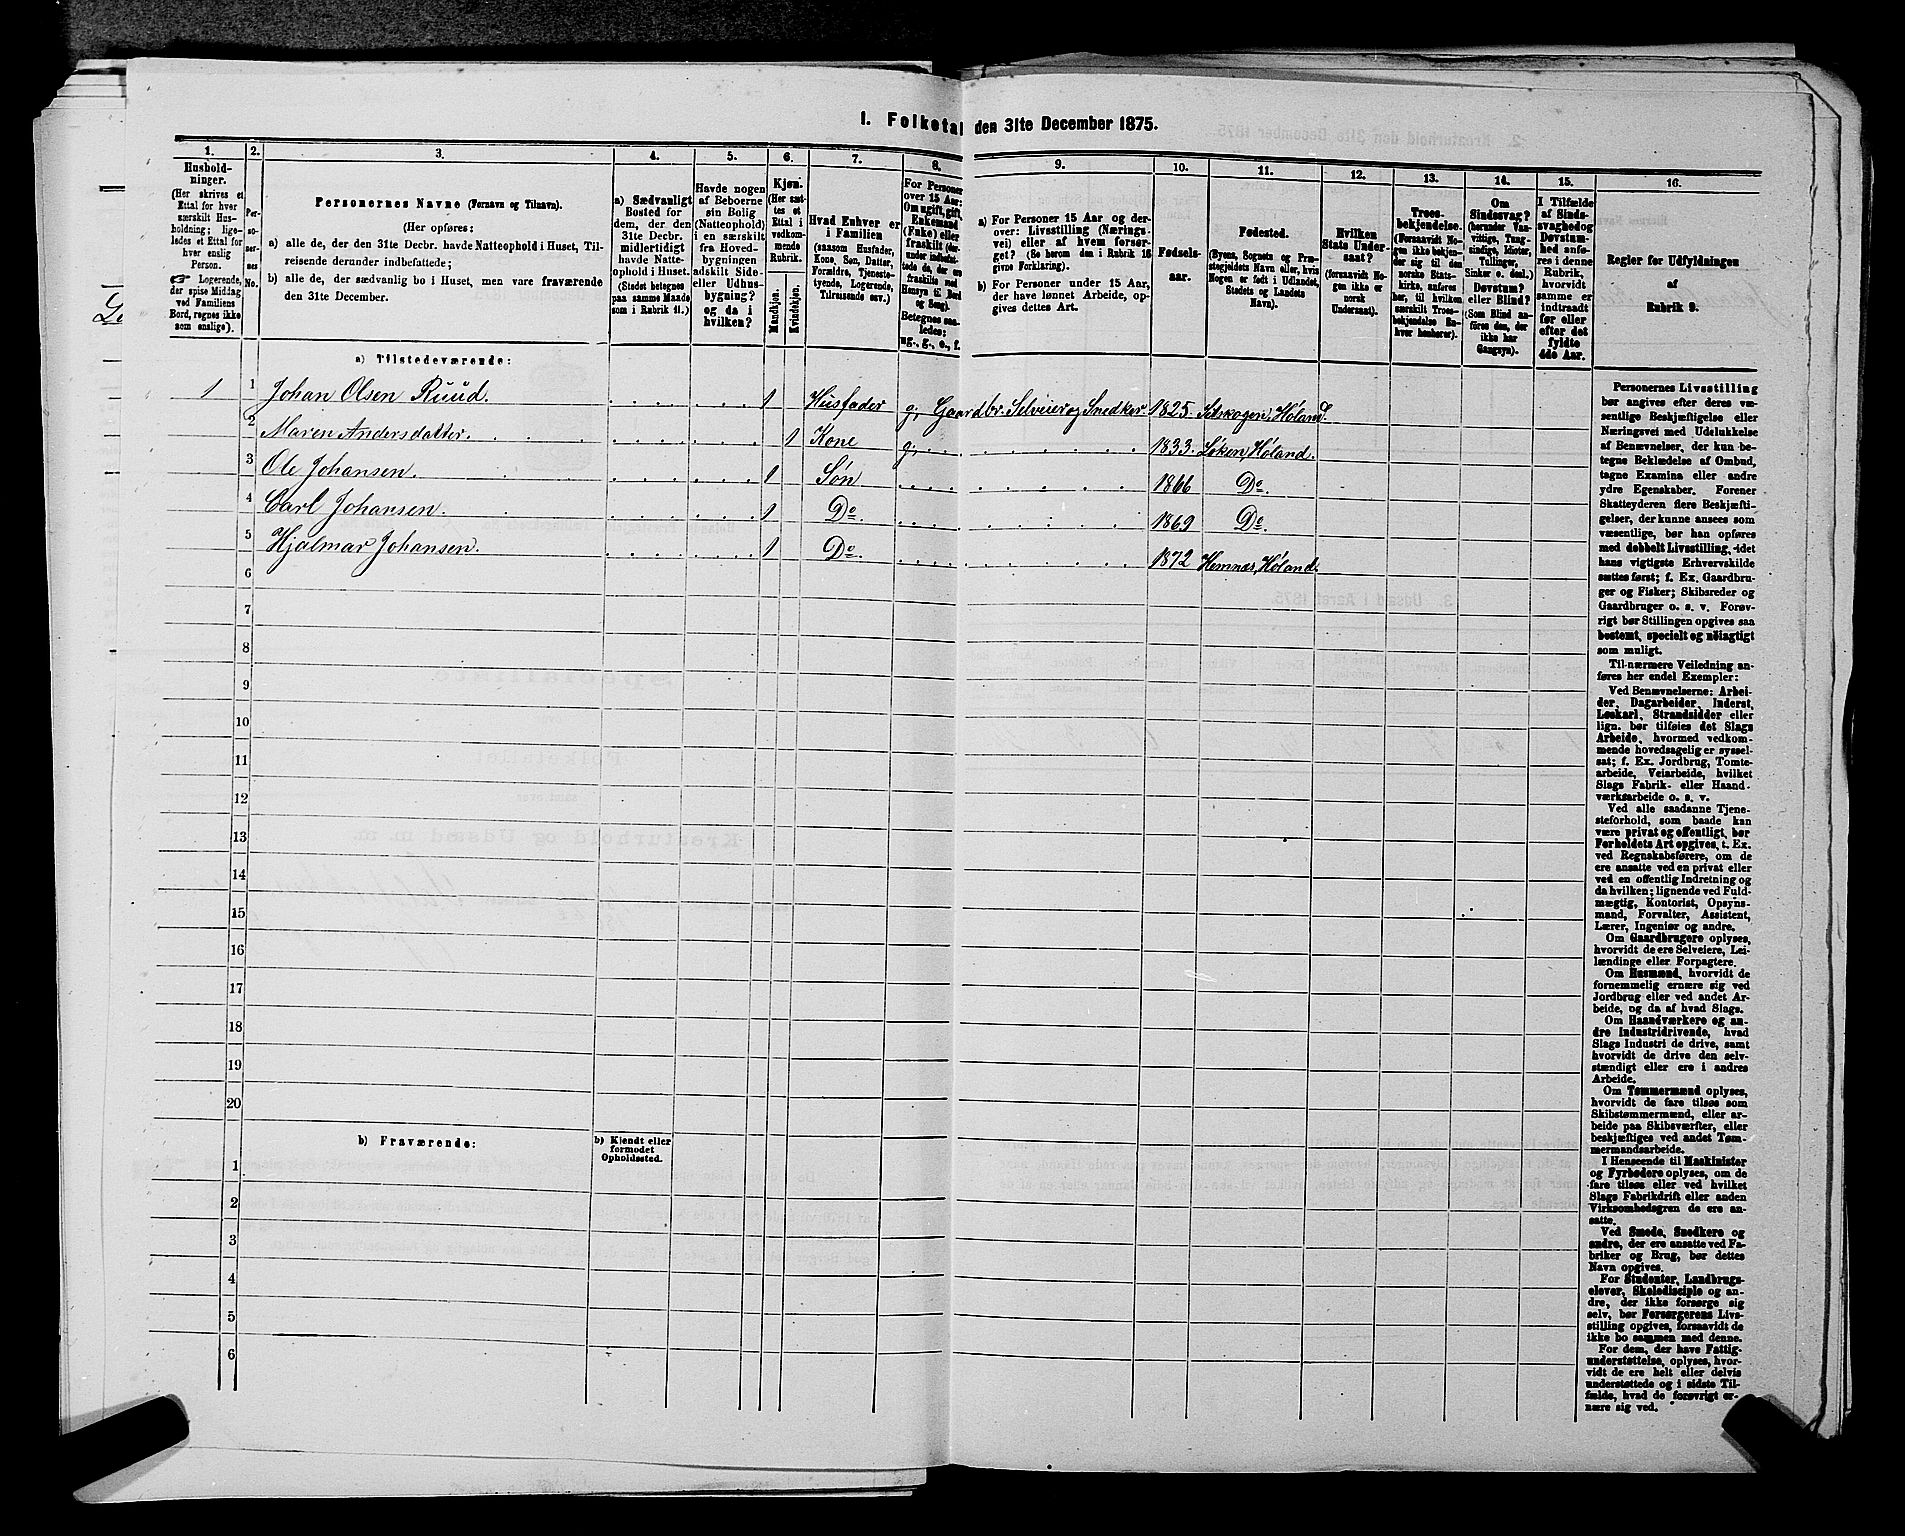 I. Folketal den 31te December 1875.
1. 2. 3. 4. 5. 6. 7. 8. 9. 10. 11. 12. 13. 14. 15. 16.
Hushold-
ninger.
(Her skrives et
Ettal for hver
særskilt Hus-
holdning; lige-
ledes et Ettal for
hver enslig
Person.
Logerende,
der spise Middag
ved Familiens
Bord, regnes ikke
som enslige).
Per-
so-
ner-
nes
No.
Personernes Navne (Fornavn og Tilnavn).
(Her opføres:
a) alle de, der den 31te Decbr. havde Natteophold i Huset, Til-
reisende derunder indbefattede;
b) alle de, der sædvanlig bo i Huset, men vare fraværende
den 31te December.
a) Sædvanligt
Bosted for
dem, der den
31te Decbr.
midlertidigt
havde Natte-
ophold i Huset.
(Stedet betegnes
paa samme Maade
som i Rubrik 11.)
Havde nogen
af Beboerne
sin Bolig
(Natteophold)
i en særskilt
fra Hoved-
bygningen
adskilt Side-
eller Udhus-
bygning?
og da i
hvilken?
Kjøn.
(Her sæt-
tes et
Ettal i
vedkom-
mende
Rubrik.
Mandkjøn.
Kvindekjøn.
Hvad Enhver er
i Familien
(saasom Husfader,
Kone, Søn, Datter,
Forældre, Tjeneste-
tyende, Logerende,
Tilreisende osv.)
For Personer
over 15 Aar:
Om ugift, gift,
Enkemand
(Enke) eller
fraskilt (der-
under indbefat-
tede de, der ere
fraskilte med
Hensyn til Bord
og Seng).
Betegnes saa-
ledes:
ug., g., e., f.
a) For Personer 15 Aar og der-
over: Livsstilling (Nærings-
vei) eller af hvem forsør-
get? (Se herom den i Rubrik 16
givne Forklaring).
b) For Personer under 15 Aar,
der have lønnet Arbeide, op-
gives dettes Art.
Fødsels-
aar.
Fødested.
(Byens, Sognets og Præ-
stegjeldets Navn eller, hvis
Nogen er født i Udlandet,
Stedets og Landets
Navn).
Hvilken
Stats Under-
saat?
(forsaavidt No-
gen ikke er
norsk
Undersaat).
Troes-
bekjendelse.
(Forsaavidt No-
gen ikke bekjen-
der sig til den
norske Stats-
kirke, anføres
her, til hvilken
særskilt Troes-
bekjendelse En-
hver henhører).
Om
Sindssvag?
(herunder Van-
vittige, Tung-
sindige, Idioter,
Tullinger,
Sinker o. desl.)
Døvstum?
eller Blind?
(Som Blind an-
føres den, der
ikke har
Gangsyn).
I Tilfælde
af Sinds-
svaghed og
Døvstum-
hed anfø-
res i denne
Rubrik,
hvorvidt
samme er
indtraadt
før eller
efter det
fyldte
4de Aar.
Regler for Udfyldningen
af
Rubrik 9.
a) Tilstedeværende:
1 1 Johan Olsen Ruud. 1 Husfader g. Gaardbr. Selveier og Snedker. 1825. Setskogen, Høland.
2 Maren Andersdatter. 1 Kone g. 1833. Løken, Høland.
3 Ole Johansen. 1 Søn 1866 Do.
4 Carl Johansen. 1 Do. 1869 Do.
5 Hjalmar Johansen. 1 Do. 1872 Hemnæs, Høland.
6
7
8
9
10
11
12
13
14
15
16
17
18
19
20
b) Fraværende:
b) Kjendt eller
formodet
Opholdssted.
1
2
3
4
5
6
Personernes Livsstilling
bør angives efter deres væ-
sentlige Beskjæftigelse eller
Næringsvei med Udelukkelse
af Benævnelser, der kun be-
tegne Beklædelse af Ombud,
tagne Examina eller andre
ydre Egenskaber. Forener
Skatteyderen flere Beskjæfti-
gelser, der kunne ansees som
væsentlige, bør han opføres
med dobbelt Livsstilling, idet
hans vigtigste Erhvervskilde
sættes først; f. Ex. Gaardbru-
ger og Fisker; Skibsreder og
Gaardbruger o. s. v. Forøv-
rigt bør Stillingen opgives saa
bestemt, specielt og nøiagtigt
som muligt.
Til nærmere Veiledning an-
føres her endel Exempler:
Ved Benævnelserne: Arbei-
der, Dagarbeider, Inderst,
Løskarl, Strandsidder eller
lign. bør tilføies det Slags
Arbeide, hvormed vedkom-
mende hovedsagelig er syssel-
sat; f. Ex. Jordbrug, Tomte-
arbeide, Veiarbeide, hvilket
Slags Fabrik- eller Haand-
værksarbeide o. s. v.
Ved alle saadanne Tjene-
steforhold, som baade kan
være privat og offentligt, bør
Forholdets Art opgives, t. Ex.
ved Regnskabsførere, om de
ere ansatte ved en privat eller
ved en offentlig Indretning og
da hvilken; lignende ved Fuld-
mægtig, Kontorist, Opsyns-
mand, Forvalter, Assistent,
Lærer, Ingeniør og andre.
Om Gaardbrugere oplyses,
hvorvidt de ere Selveiere, Lei-
lændinge eller Forpagtere.
Om Husmænd, hvorvidt de
fornemmelig ernære sig ved
Jordbrug eller ved andet Ar-
beide, og da af hvad Slags.
Om Haandværkere og an-
dre Industridrivende, hvad
Slags Industri de drive, samt
hvorvidt de drive den selv-
stændigt eller ere i andres
Arbeide.
Om Tømmermænd oplyses,
hvorvidt de fare tilsøs som
Skibstømmermænd, eller ar-
beide paa Skibsværfter, eller
beskjæftiges ved andet Tøm-
mermandsarbeide.
I Henseende til Maskinister
og Fyrbødere oplyses, om de
fare tilsøs eller ved hvilket
Slags Fabrikdrift eller anden
Virksomhedsgren de ere an-
satte.
Ved Smede, Snedkere og
andre, der ere ansatte ved Fa-
briker og Brug, bør dettes
Navn opgives.
For Studenter, Landbrugs-
elever, Skoledisciple og an-
dre, der ikke forsørge sig
selv, bør Forsørgerens Livs-
stilling opgives, forsaavidt de
ikke bo sammen med denne.
For dem, der have Fattig-
understøttelse, oplyses, hvor-
vidt de ere helt eller delvis
understøttede og i sidste Til-
fælde, hvad de forøvrigt er-
nære sig ved.